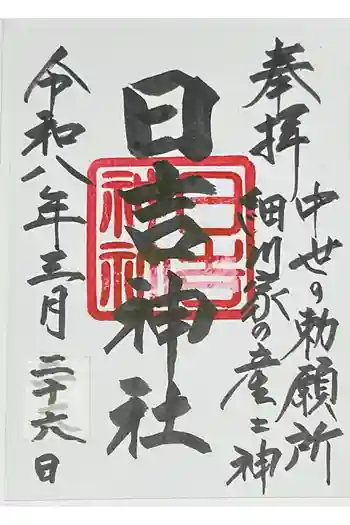 奉拝
中世の勅願所
細川家の産土神
日吉神社
日吉神社
令和八年三月二十六日